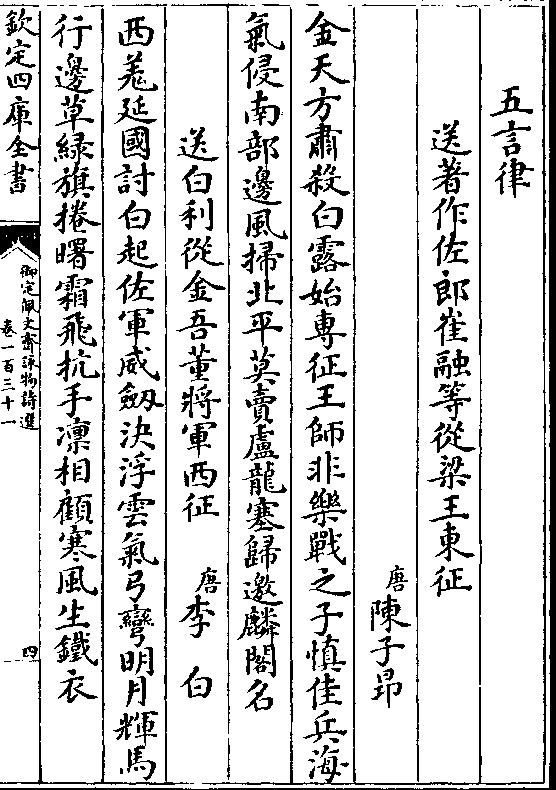 五言律
送著作佐郎崔融等從梁王東征
唐陳子昂
金天方肅殺白露始專征王師非樂戰之子慎佳兵海
氣侵南部邊風掃北平莫賣盧龍塞歸邀麟閣名
送白利從金吾董將軍西征 唐李白
西羌延國討白起佐軍威劒決浮雲氣弓彎明月輝馬
行邊草綠旗捲曙霜飛抗手凜相顧寒風生鐵衣
欽定四庫全書
御定佩文齋詠物詩選
卷一百三十一
四